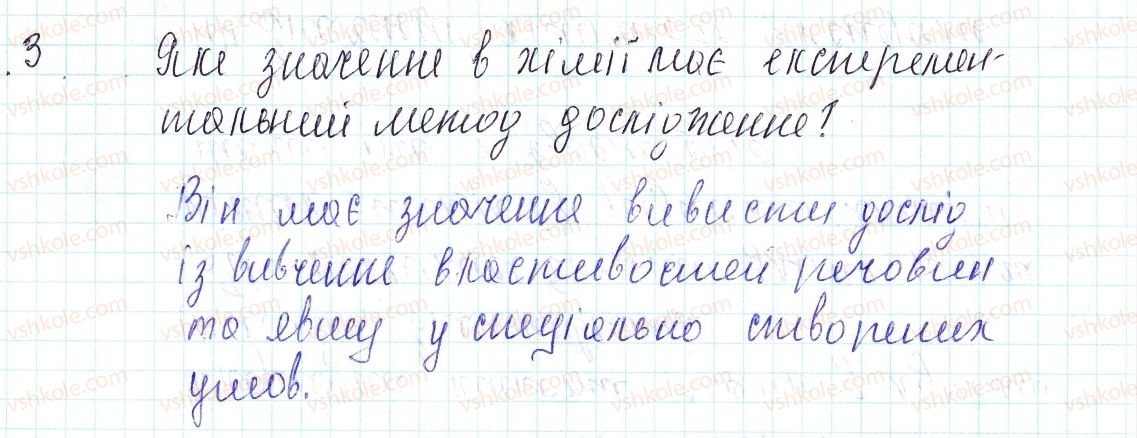 3. Яке значення в хімії має експеремен-
тальний метод дослідження?
Він має значення вивисти дослід
із вивчення властивостей речовин
та явищ у спеціально створених
умов.